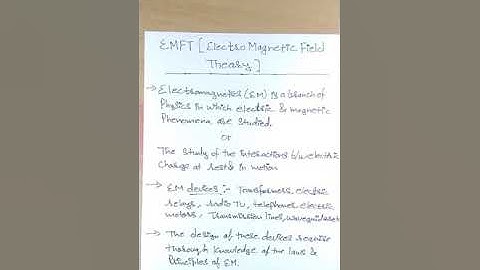 EMFT [Electro Magnetic Field
Theory]
→ Electromagnetics (EM) is a branch of
Physics in which electric & magnetic
Phenomena are studied.
Or
The Study of the interactions b/w electric
Charge at rest & in motion
→ EM devices :- Transformers, electric
relays, Radio TV, telephones, electric
motors, Transmission lines, waveguides etc
→ The design of these devices require
thorough knowledge of the laws &
Principles of EM.